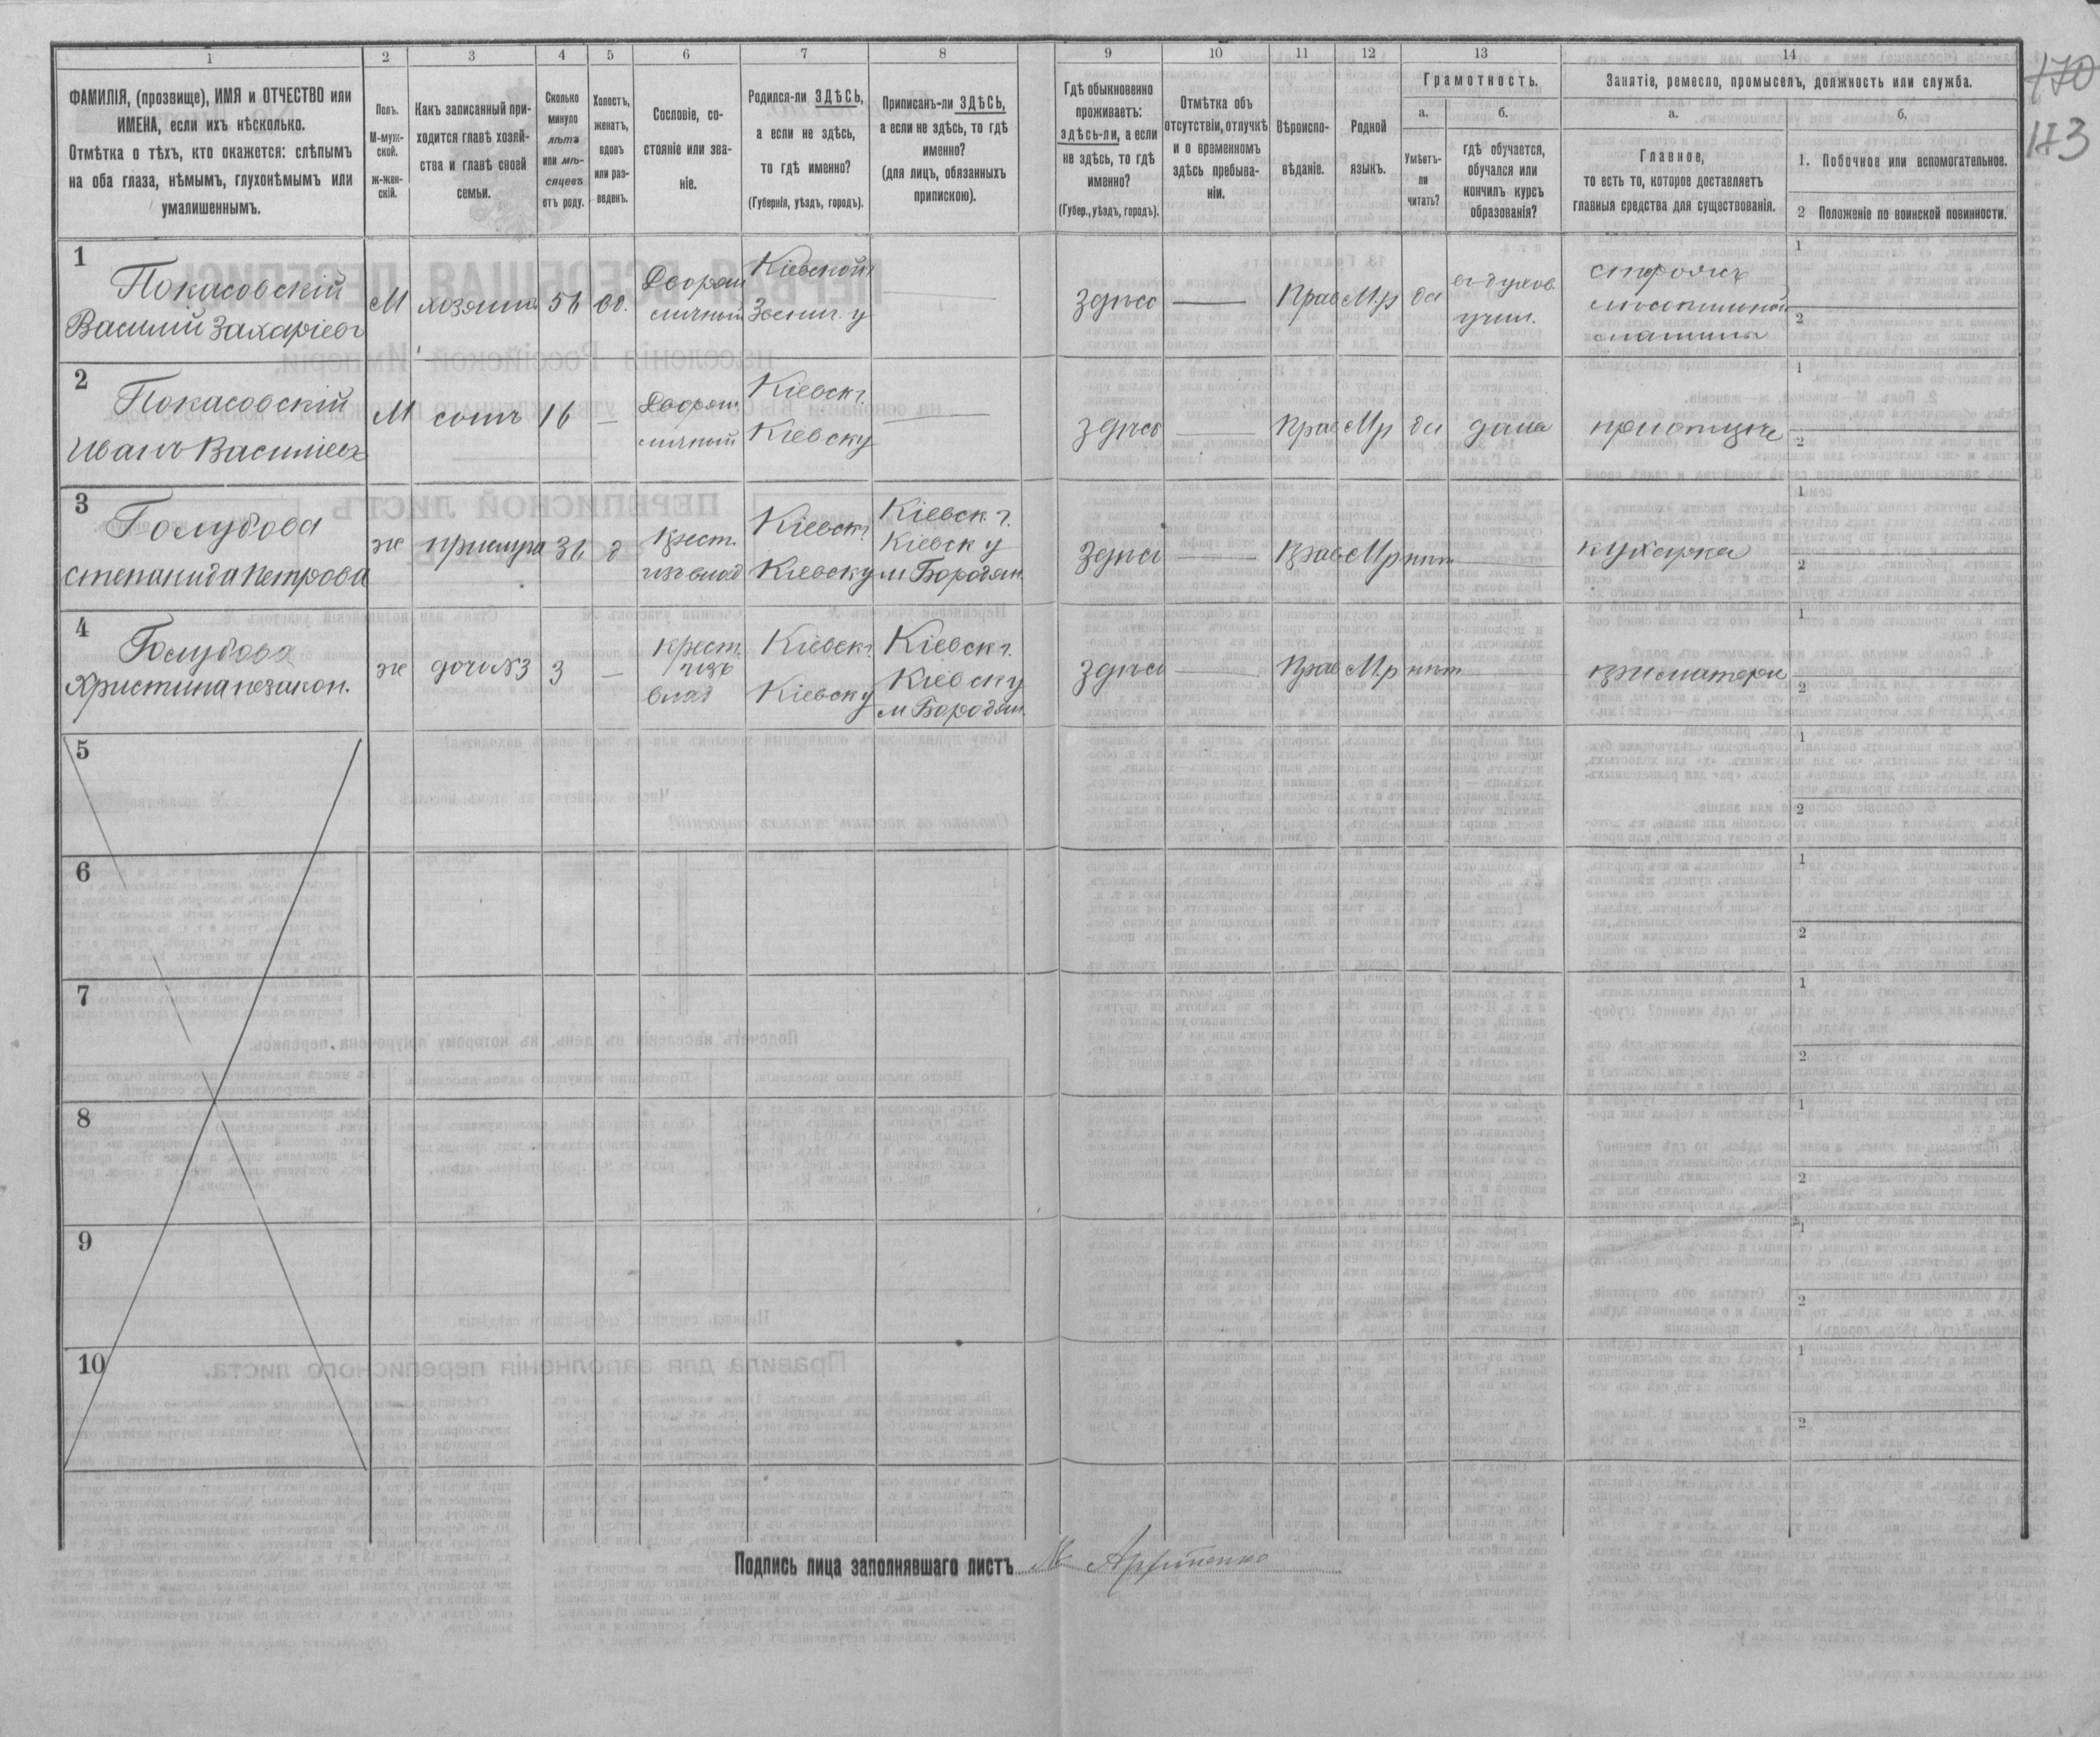 1 2 3 4 5 6 7 8 9 10 11 12 13 14
170
173
ФАМИЛІЯ, (прозвище), ИМЯ и ОТЧЕСТВО или
ИМЕНА, если ихъ нѣсколько.
Отмѣтка о тѣхъ, кто окажется: слѣпымъ
на оба глаза, нѣмымъ, глухонѣмымъ или
умалишеннымъ.
Полъ.
М-муж-
ской.
ж-жен-
скій.
Какъ записанный при-
ходится главѣ хозяй-
ства и главѣ своей
семьи.
Сколько
минуло
лѣтъ
или мѣ-
сяцевъ
отъ роду.
Холостъ,
женатъ,
вдовъ
или раз-
веденъ.
Сословіе, со-
стояніе или зва-
ніе.
Родился-ли ЗДѢСЬ,
а если не здѣсь,
то гдѣ именно?
(Губернія, уѣздъ, городъ).
Приписанъ-ли ЗДѢСЬ,
а если не здѣсь, то гдѣ
именно?
(для лицъ, обязанныхъ
припискою).
Гдѣ обыкновенно
проживаетъ:
здѣсь-ли, а если
не здѣсь, то гдѣ
именно?
(Губер., уѣздъ, городъ).
Отмѣтка объ
отсутствіи, отлучкѣ
и о временномъ
здѣсь пребыва-
ніи.
Вѣроиспо-
вѣданіе.
Родной
языкъ.
Грамотность.
а.
Умѣетъ-
ли
читать?
б.
гдѣ обучается,
обучался или
кончилъ курсъ
образованія?
Занятіе, ремесло, промыселъ, должность или служба.
а.
Главное,
то есть то, которое доставляетъ
главныя средства для существованія.
б.
1. Побочное или вспомогательное.
2 Положеніе по воинской повинности.
1
Покасовскій
Василій Захаріевъ
М хозяинъ 56 вд.
Дворян
личный
Кіевской г
Звениг. у
здѣсь — Прав М.р да
въ духов.
учил.
1
2
2
Покасовскій
Иванъ Василіевъ
М сынъ 16 —
Дворян.
личный
Кіевск г.
Кіевск у
—
здѣсь — Прав Мр да дома
1
2
3
Голубова
Степанида Петрова
же прислуга 36 д
Крест.
изъ влад
Кіевск г.
Кіевск у
Кіевск г.
Кіевск у
м Бородян.
здѣсь — Прав Мр нѣт — кухарка
1
2
4
Голубова
Христина незакон.
же дочь №3 3 —
крест.
изъ
влад
Кіевск г.
Кіевск у
Кіевск г.
Кіевск у
м Бородян.
здѣсь — Прав Мр нѣт — при матери
1
2
5
1
2
6
1
2
7
1
2
8
1
2
9
1
2
10
1
2
Подпись лица заполнявшаго листъ